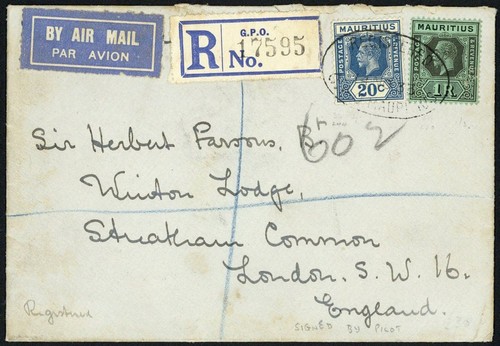 BY AIR MAIL
PAR AVION
G.P.O.
R No. 17595
MAURITIUS
POSTAGE
& REVENUE
20c
MAURITIUS
POSTAGE
& REVENUE
1R
Sir Herbert Parsons, Bt
602
Winton Lodge,
Streatham Common
London. S. W. 16.
England.
Registered
SIGNED BY PILOT